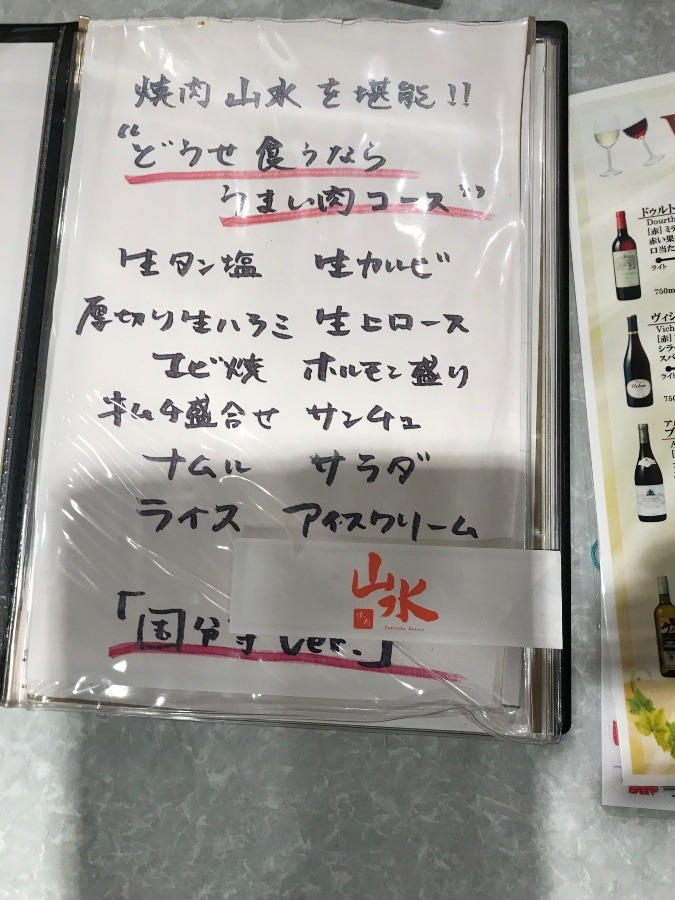 焼肉 山水 を 堪能!!
“どうせ 食うなら
うまい肉コース”
生タン塩 生カルビ
厚切り生ハラミ 生上ロース
エビ焼 ホルモン盛り
キムチ盛合せ サンチュ
ナムル サラダ
ライス アイスクリーム
山水
焼肉
「国分寺 ver.」
ドゥルト
Dourth
[赤] ミデ
赤い果
口当た
ライト
750m
ヴィシ
Vich
[赤]
シラー
スパ
ライト
750